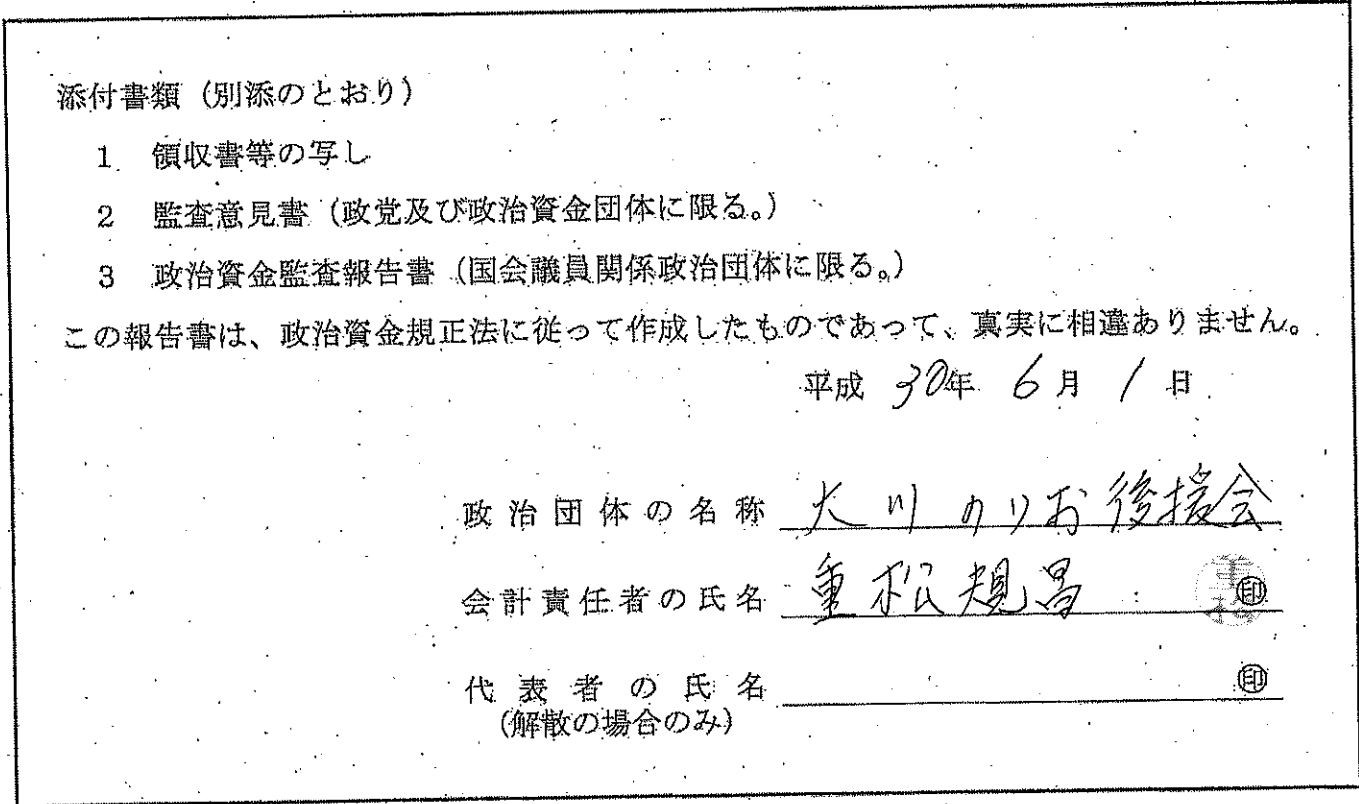 添付書類(別添のとおり)
1 領収書等の写し
2 監査意見書(政党及び政治資金団体に限る。)
3 政治資金監査報告書(国会議員関係政治団体に限る。)
この報告書は、政治資金規正法に従って作成したものであって、真実に相違ありません。
平成 30年 6月 1日
政治団体の名称 大川のりお後援会
会計責任者の氏名 重松規昌 重松 ㊞
代表者の氏名 ㊞
(解散の場合のみ)